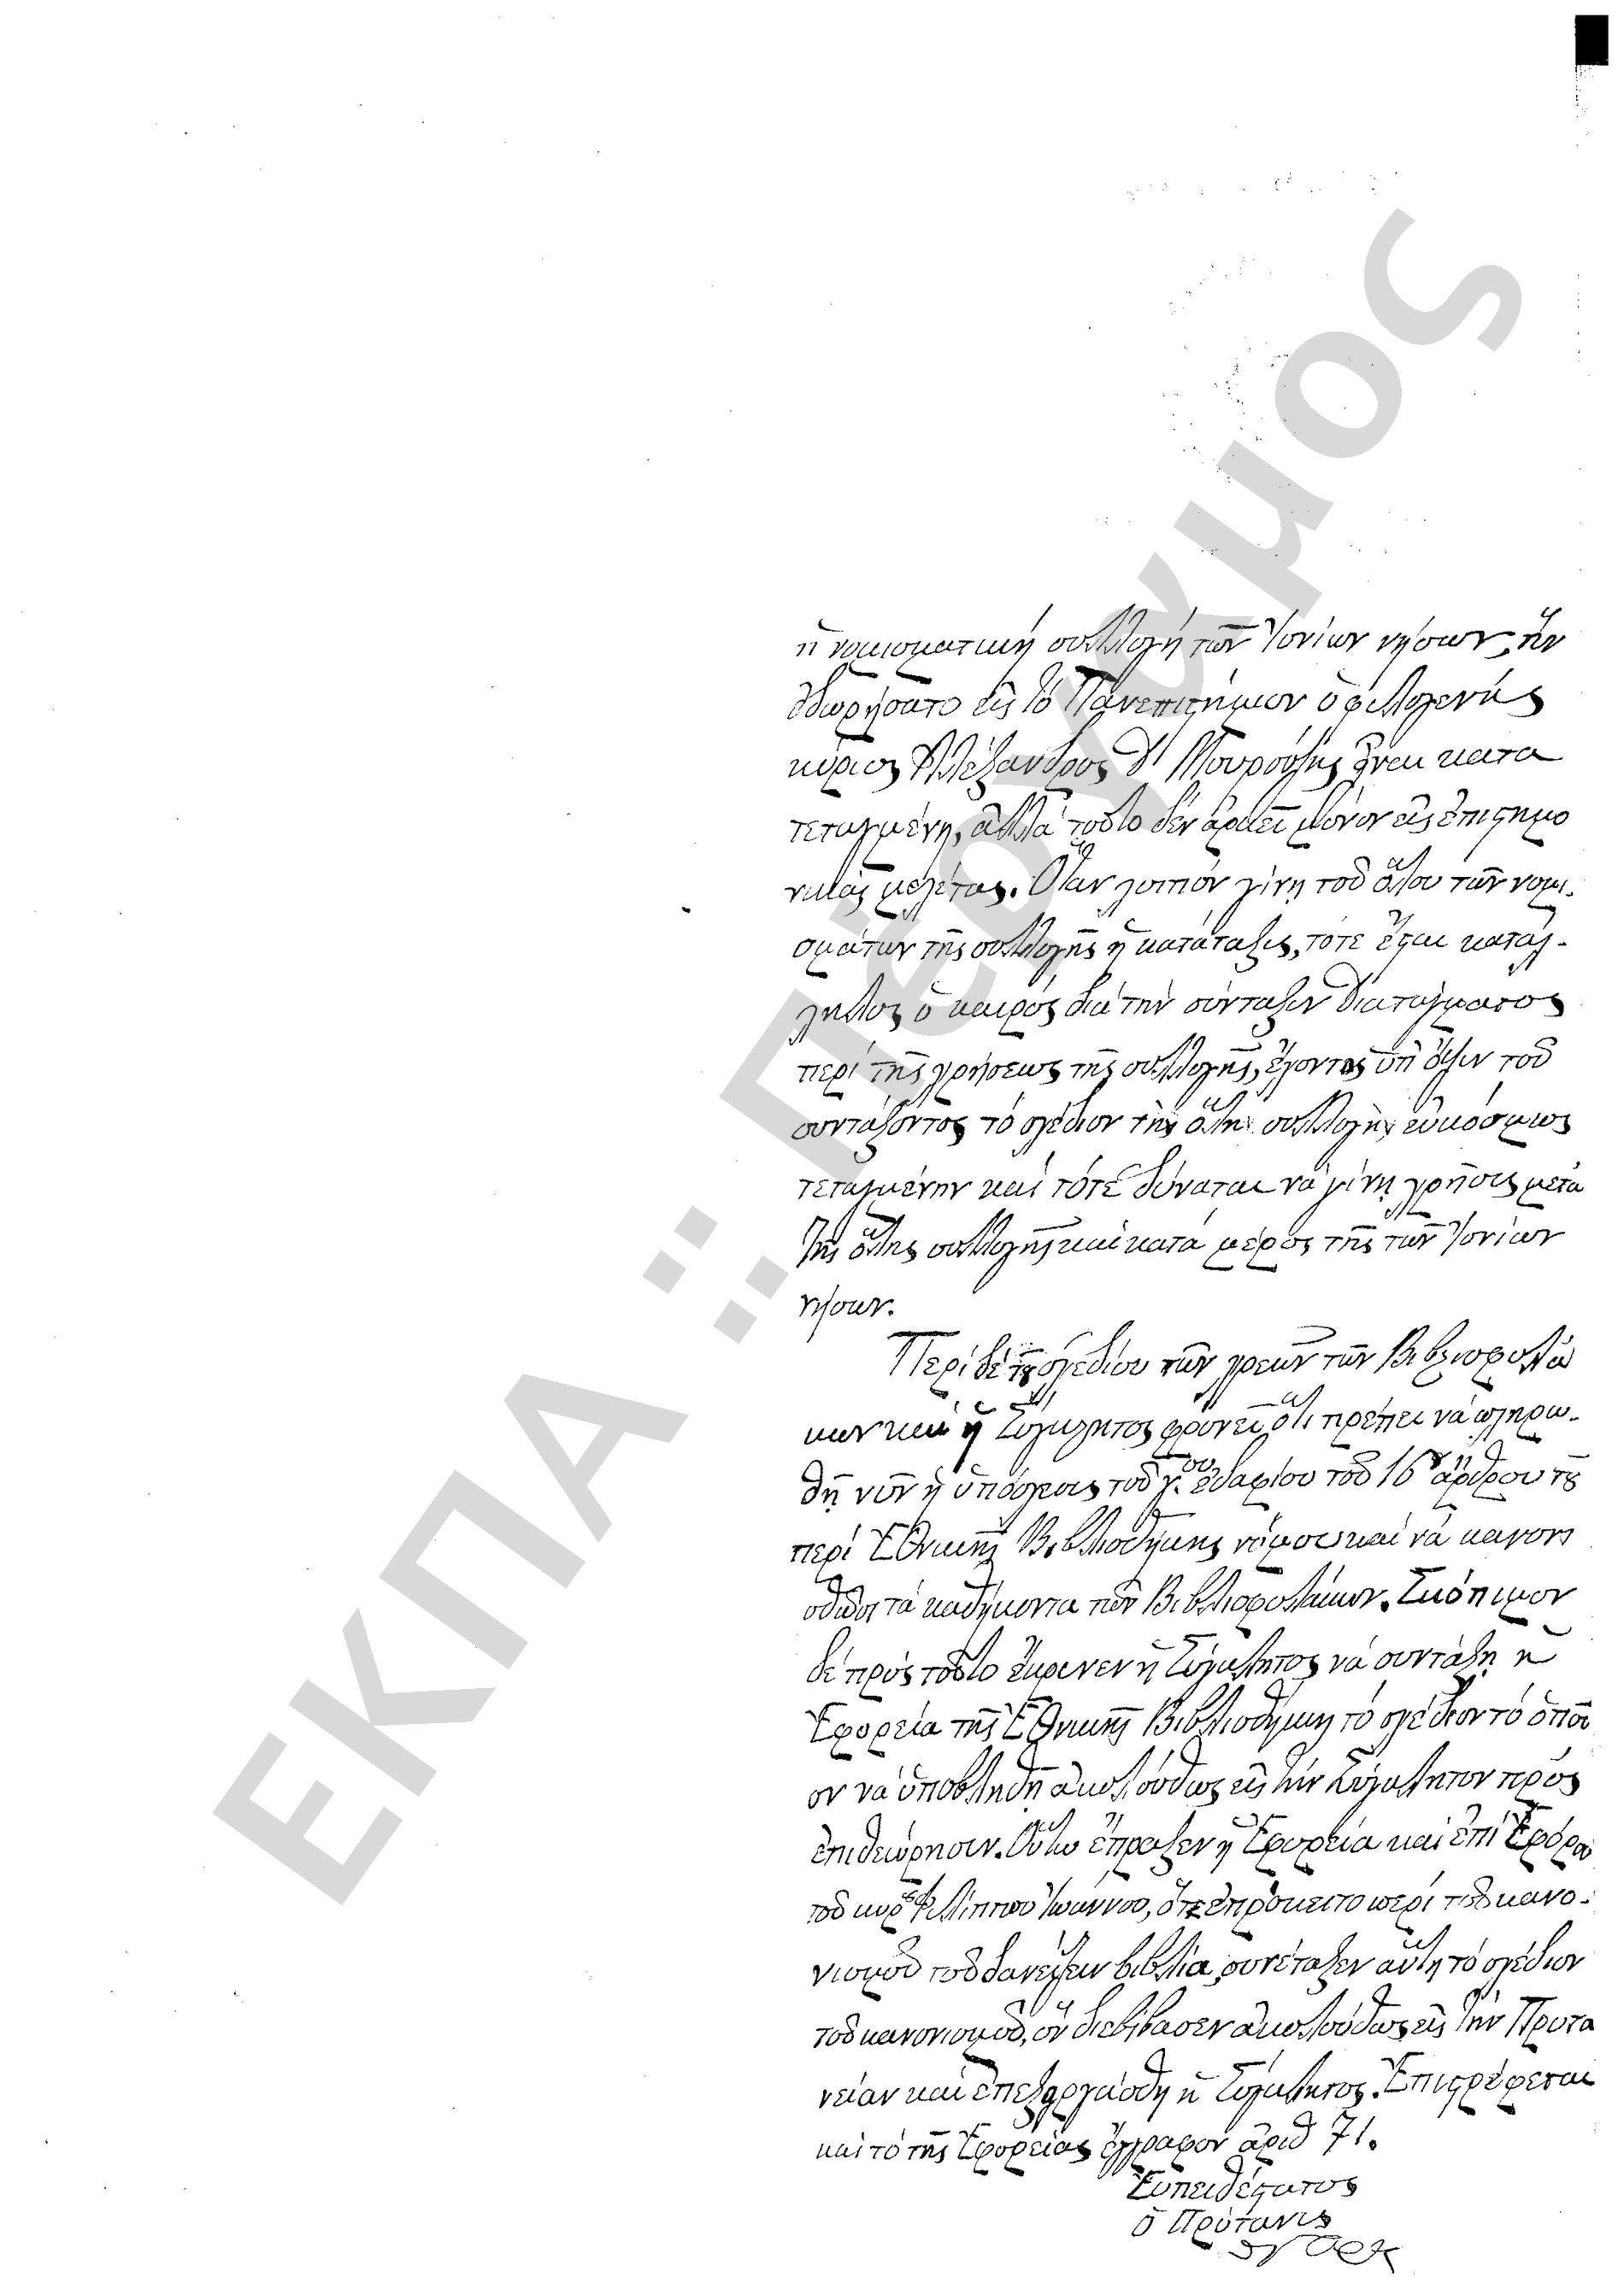 ἡ νομισματικὴ συλλογὴ τῶν Ἰονίων νήσων, ἣν
ἐδωρήσατο εἰς τὸ Πανεπιστήμιον ὁ φιλογενὴς
κύριος Ἀλέξανδρος Δ. Μουρούζης εἶναι κατα
τεταγμένη, ἀλλὰ τοῦτο δὲν ἀρκεῖ μόνον εἰς ἐπιστημο
νικὰς μελέτας. Ὅταν λοιπὸν γίνῃ τοῦ ὅλου τῶν νομι-
σμάτων τῆς συλλογῆς ἡ κατάταξις, τότε ἔσται κατάλ-
ληλος ὁ καιρὸς διὰ τὴν σύνταξιν διατάγματος
περὶ τῆς χρήσεως τῆς συλλογῆς, ἔχοντος ὑπ' ὄψιν τοῦ
συντάξοντος τὸ σχέδιον τὴν ὅλην συλλογὴν εὐκόσμως
τεταγμένην καὶ τότε δύναται νὰ γίνῃ χρῆσις μετὰ
τῆς ὅλης συλλογῆς καὶ κατὰ μέρος τῆς τῶν Ἰονίων
νήσων.
Περὶ δὲ τοῦ σχεδίου τῶν χρεῶν τῶν Βιβλιοφυλά
κων καὶ ἡ Σύγκλητος φρονεῖ, ὅτι πρέπει νὰ πληρω-
θῇ νῦν ἡ ὑπόσχεσις τοῦ γ. ἐδαφίου τοῦ 16 ἄρθρου τοῦ
περὶ Ἐθνικῆς Βιβλιοθήκης νόμου καὶ νὰ κανονι
σθῶσι τὰ καθήκοντα τῶν Βιβλιοφυλάκων. Σκόπιμον
δὲ πρὸς τοῦτο ἔκρινεν ἡ Σύγκλητος νὰ συντάξῃ ἡ
Ἐφορεία τῆς Ἐθνικῆς Βιβλιοθήκης τὸ σχέδιον τὸ ὁποῖ
ον νὰ ὑποβληθῇ ἀκολούθως εἰς τὴν Σύγκλητον πρὸς
ἐπιθεώρησιν. Οὕτω ἔπραξεν ἡ Ἐφορεία καὶ ἐπὶ Ἐφόρου
τοῦ κυρ. Φιλίππου Ἰωάννου, ὅτε ἐπρόκειτο περὶ τοῦ κανο-
νισμοῦ τοῦ δανείζειν βιβλία, συνέταξεν αὕτη τὸ σχέδιον
τοῦ κανονισμοῦ, ὃν διεβίβασεν ἀκολούθως εἰς τὴν Πρυτα
νείαν καὶ ἐπεξηργάσθη ἡ Σύγκλητος. Ἐπιστρέφεται
καὶ τὸ τῆς Ἐφορείας ἔγγραφον ἀριθ 71.
Εὐπειθέστατος
ὁ Πρύτανις
ΕΚΠΑ : Πέργαμος